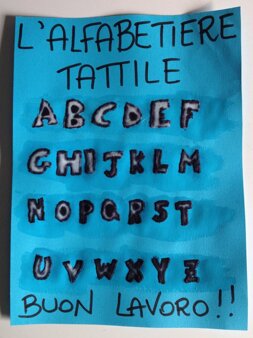 L'ALFABETIERE
TATTILE
A B C D E F
G H I J K L M
N O P Q R S T
U V W X Y Z
BUON LAVORO!!